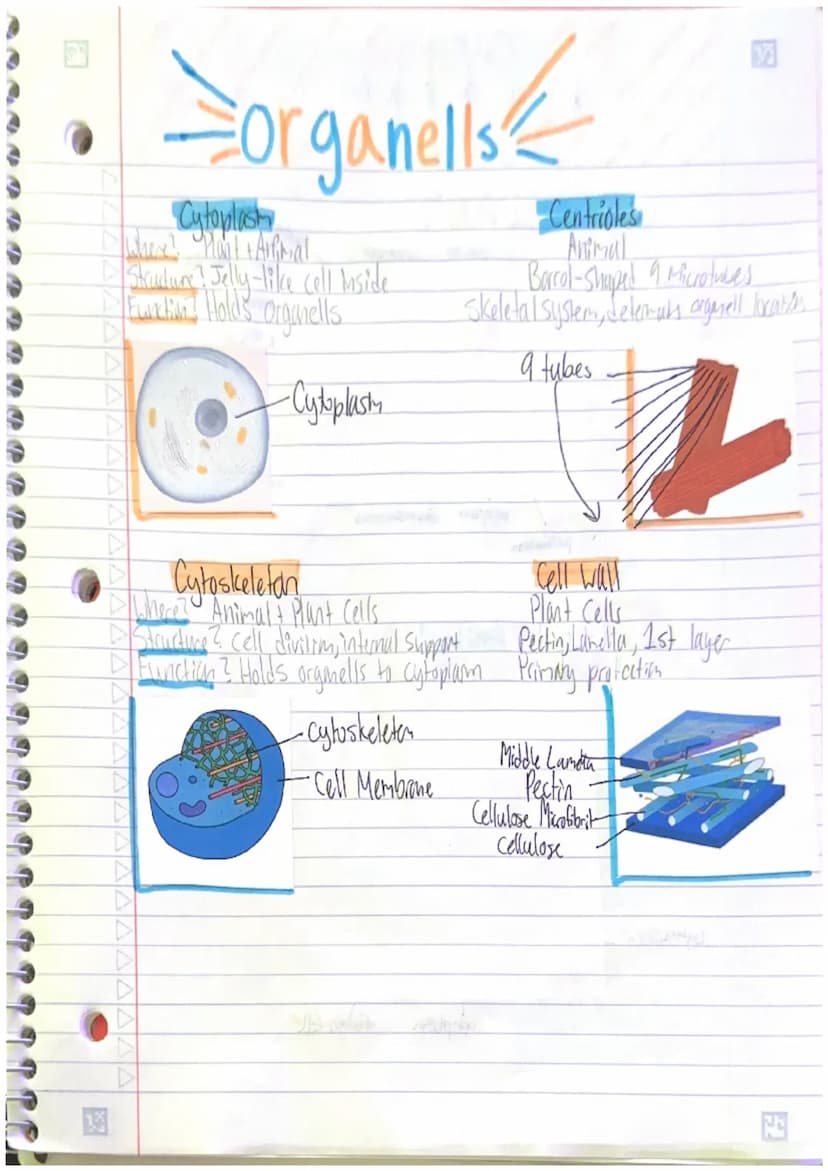 Organells
Cytoplasm
Where? Plant + Animal
Structure? Jelly-like cell inside
Function? Holds organells
Cytoplasm
Centrioles
Animal
Barrol-shaped 9 Microtubes
Skeletal system, organell location
9 tubes
Cytoskeleton
Where? Animal + Plant Cells
Structure? Cell division, internal support
Function? Holds organells to cytoplasm
Cytoskeleton
Cell Membrane
Cell Wall
Plant Cells
Pectin, Lamella, 1st layer
Primary protection
Middle Lamella
Pectin
Cellulose Microfibril
Cellulose